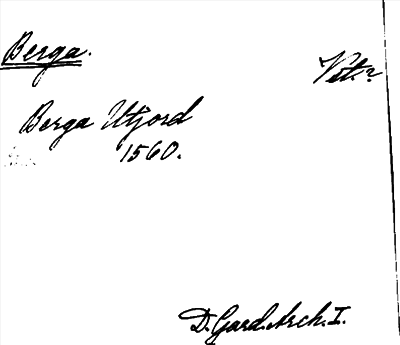 Berga.
Vet.?
Berga Utjord
1560.
D. Gard. Arch. I.